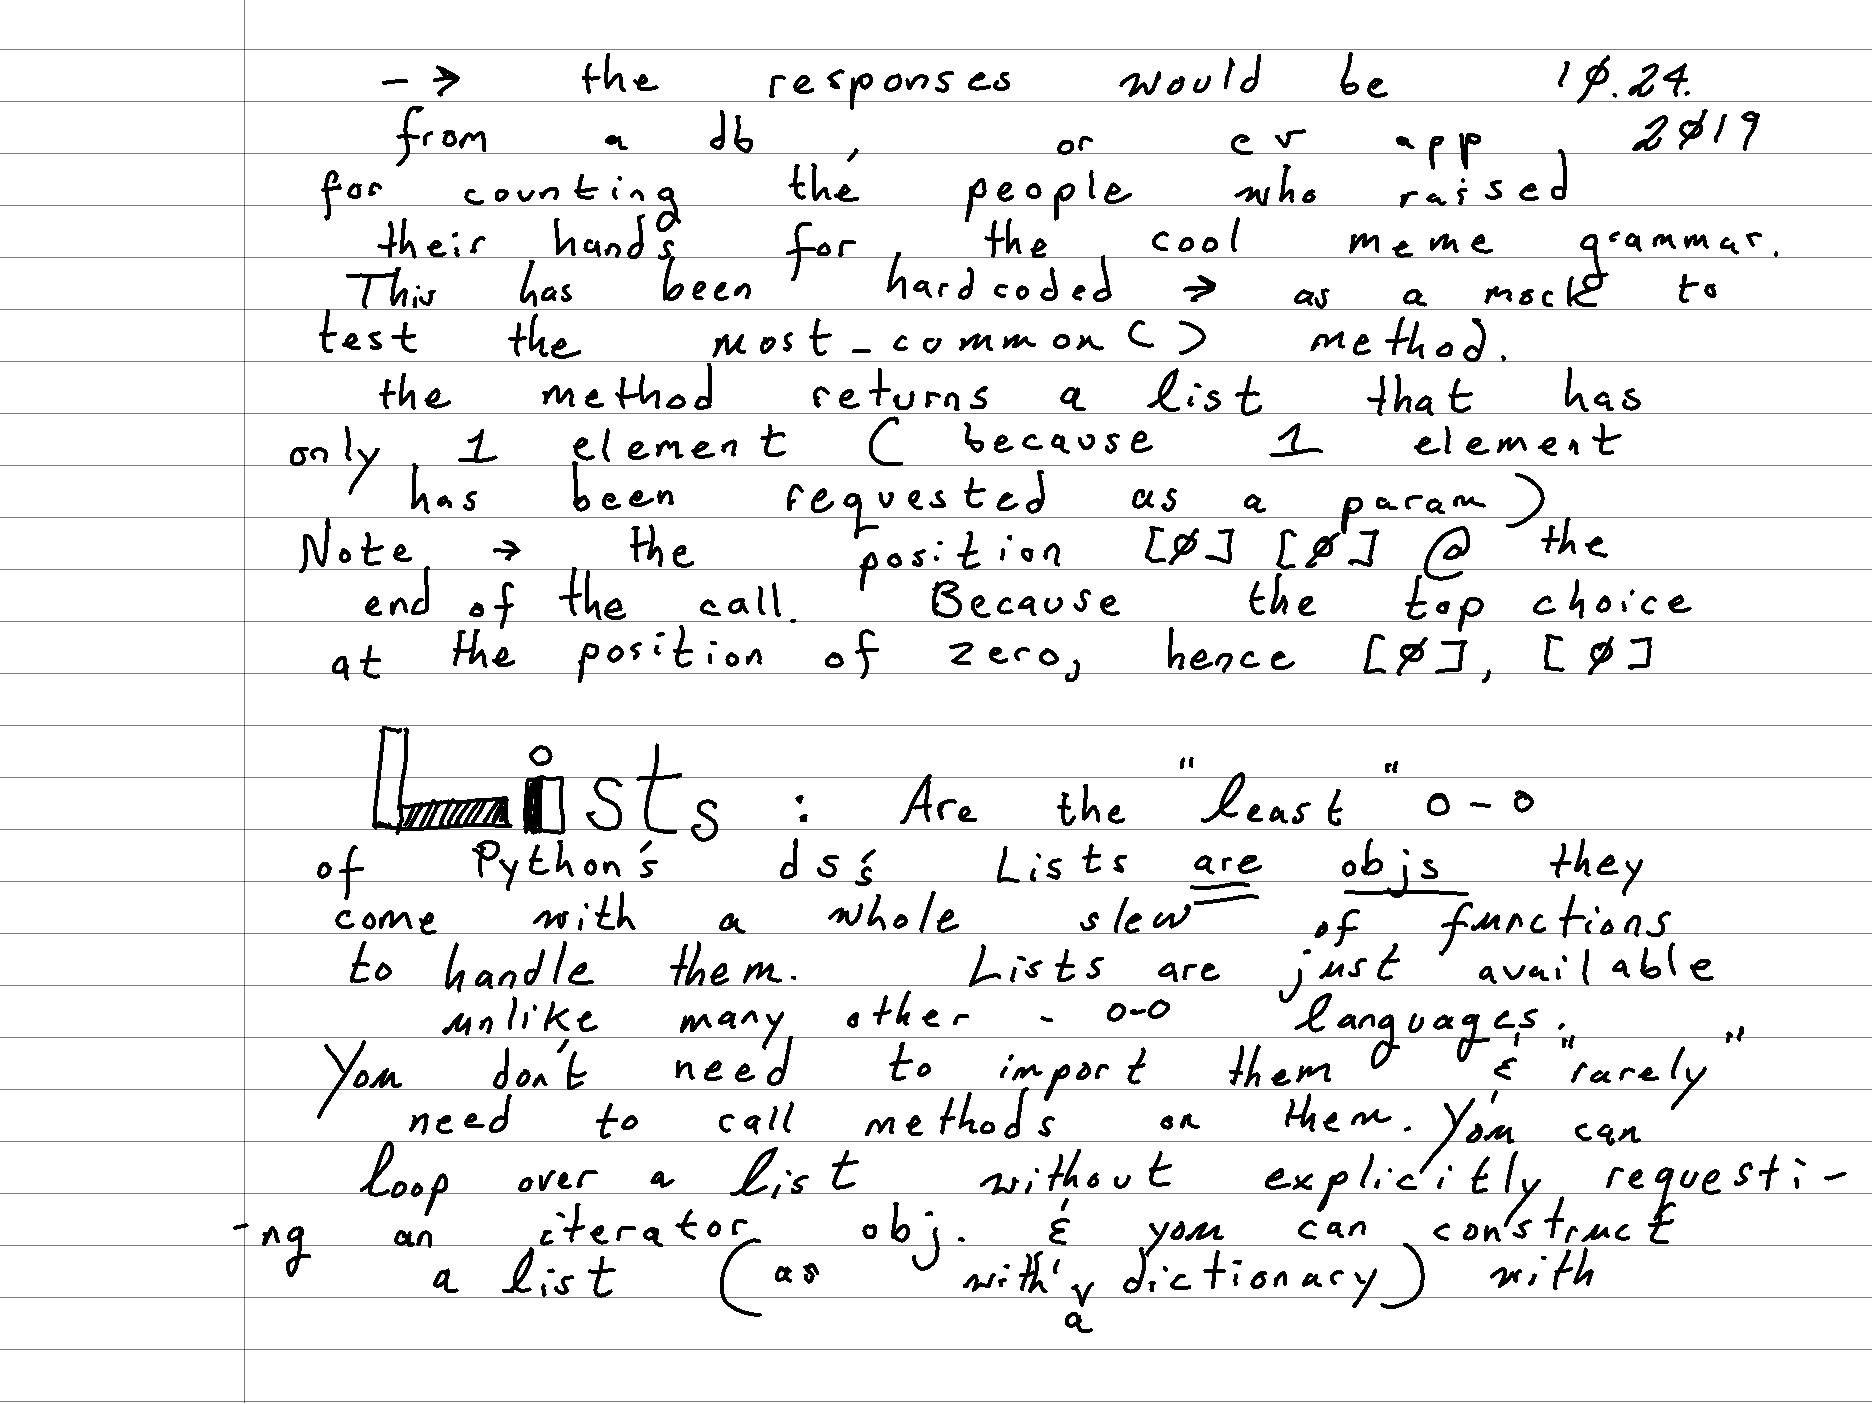 -→ the responses would be 1Ø.24.
from a db, or cv app, 2Ø19
for counting the people who raised
their hands for the cool meme grammar.
This has been hardcoded → as a mock to
test the most_common() method.
the method returns a list that has
only 1 element (because 1 element
has been requested as a param)
Note → the position [Ø] [Ø] @ the
end of the call. Because the top choice
at the position of zero, hence [Ø], [Ø]
Lists : Are the "least" o-o
of Python's ds's Lists are objs they
come with a whole slew of functions
to handle them. Lists are just available
unlike many other - o-o languages.
You don't need to import them & "rarely"
need to call methods on them. You can
loop over a list without explicitly requesti-
-ng an iterator obj. & you can construct
a list (as with a dictionary) with